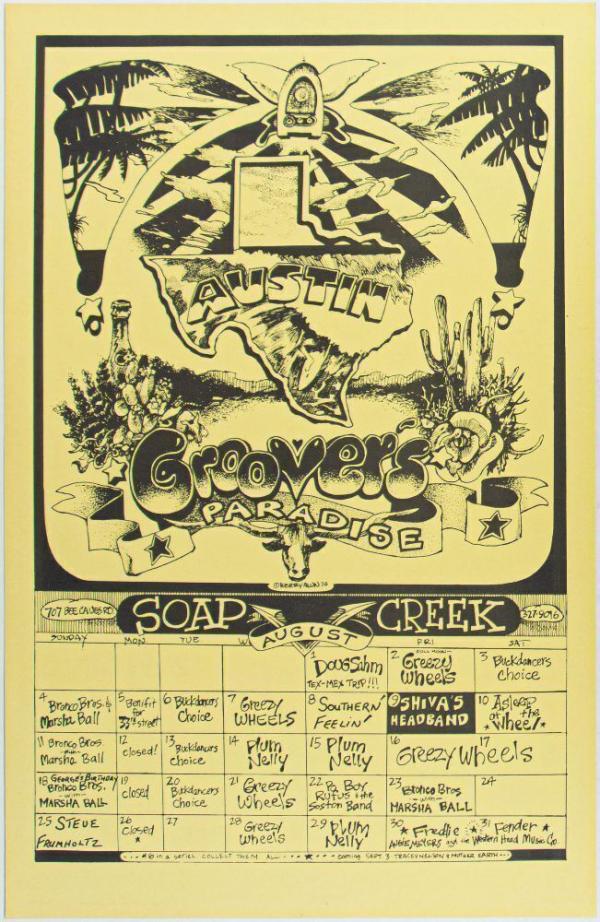 AUSTIN
Groover's
PARADISE
©KERRY AWN 74
707 BEE CAVES RD
SOAP CREEK
327-9016
AUGUST
SUNDAY MON. TUE W FRI SAT
1 DOUG SAhm
TEX-MEX TRIP!!!
2 FULL MOON
Greezy Wheels
3 Buckdancers choice
4 Bronco Bros. &
Marsha Ball
5 Benifit for 33rd street
6 Buckdancers Choice
7 Greezy WHEELS
8 SOUTHERN FEELIN'
9 SHIVA'S HEADBAND
10 ASleep at the Wheel
11 Bronco Bros.
Marsha Ball
12 closed!
13 Buckdancers choice
14 Plum Nelly
15 Plum Nelly
16 Greezy Wheels 17
18 GEORGE'S BIRTHDAY
Bronco Bros.
with
MARSHA BALL
19 closed
20 Buckdancers choice
21 Greezy Wheels
22 Pa Boy RUFUS & the Soston Band
23 Bronco Bros
with
MARSHA BALL
24
25 STEVE FRUMHOLTZ
26 Closed
27
28 Greezy Wheels
29 PLUM Nelly
30 Freddie 31 Fender
AUGIE MEYERS and the Western Head Music Co.
#6 in a SERIES. COLLECT THEM ALL coming SEPT 3 TRACEY NELSON & MOTHER EARTH